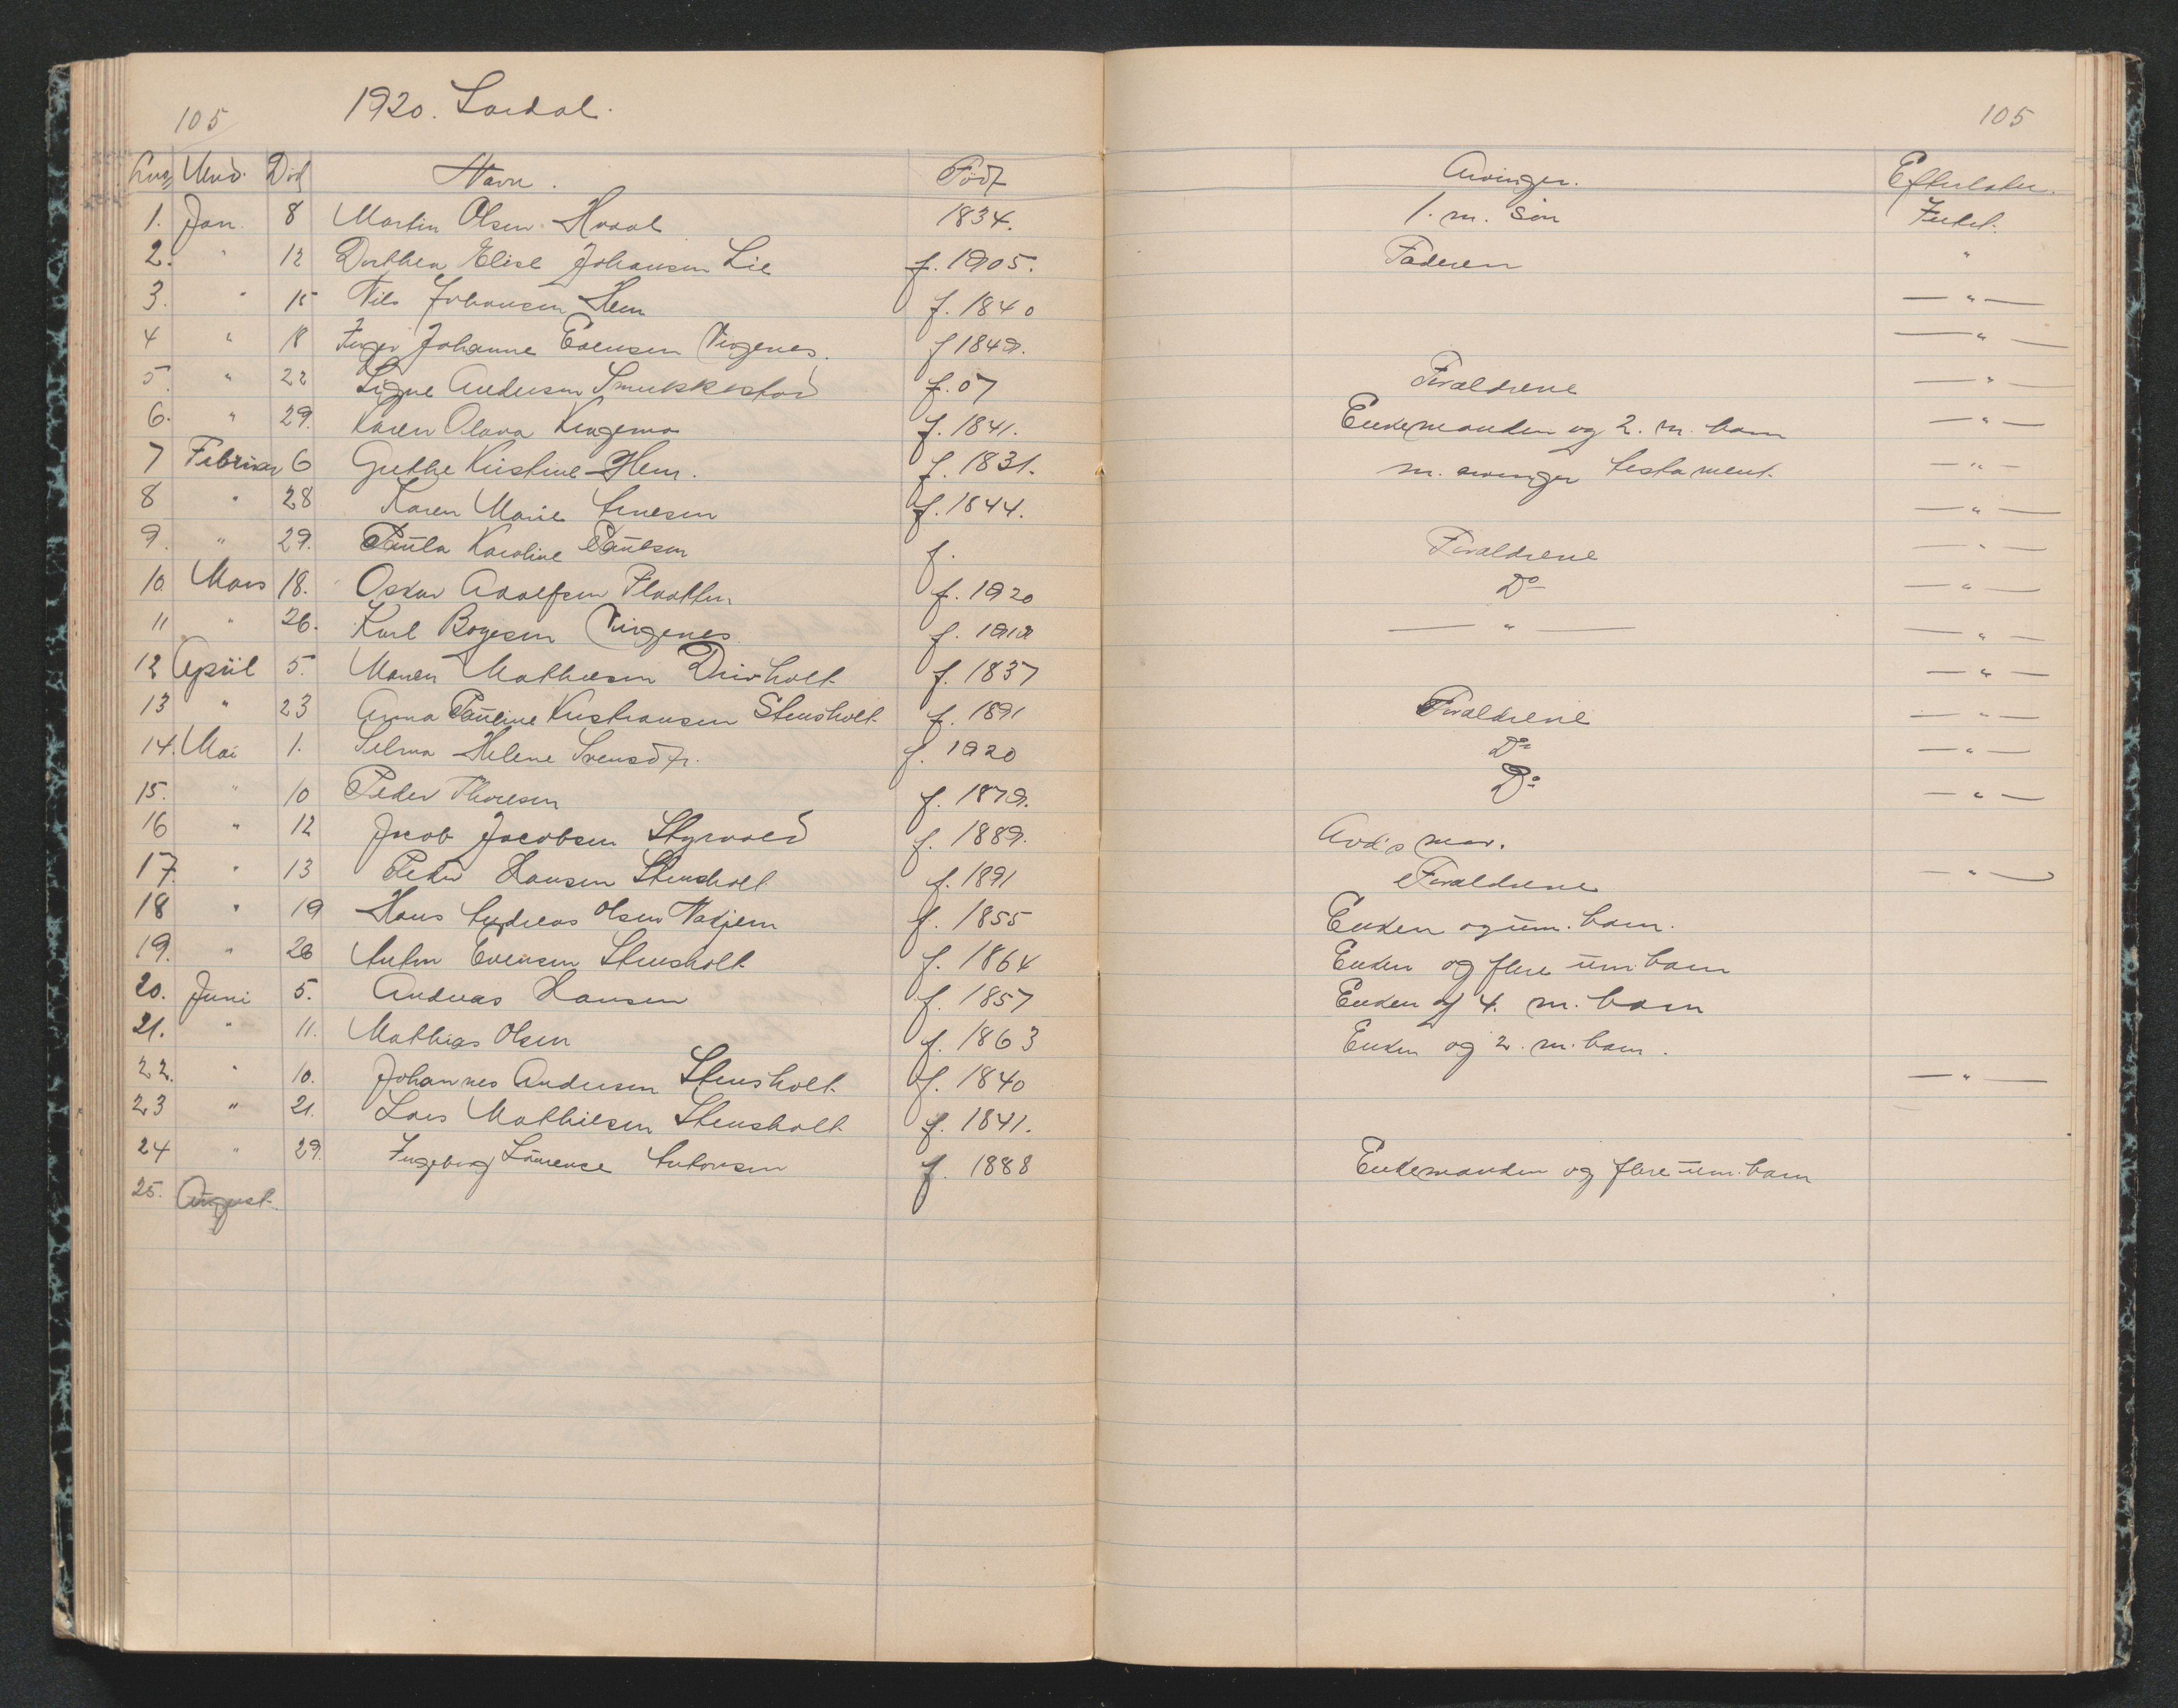 105 1920. Lardal. 105
Mnd. Död Navn. Födt Arvinger. Efterlater.
1. Jan. 8 Martin Olsen Hvaal 1834. 1. m. sön Intet.
2. " 12 Dorthea Elise Johansen Lie f. 1905. Faderen "
3. " 15 Nils Johansen Hem f. 1840 — " —
4 " 18 Inger Johanne Evensen Vegenes. f 1849. — " —
5. " 22 Signe Andersen Smukkestad f. 07 Foraldrene — " —
6. " 29. Karen Olava f. 1841. Enkemanden og 2. m. barn — " —
7 Februar 6 Grethe Kristine Hem. f. 1831. m. arvinger testament. — " —
8 " 28 Karen Marie Arnesen f. 1844. — " —
9. " 29. Paula Karoline Paulsen f. Foraldrene — " —
10. Mars 18. Oskar Adolfsen Flaatten f. 1920 Do — " —
11 " 26. Karl Bogesen Vegenes f. 1919 — " — — " —
12 April 5. Maren Mathisen Divholt f. 1837 — " —
13 " 23 Anna Pauline Kristiansen Stensholt f. 1891 Foraldrene — " —
14. Mai 1. Selma Helene Svensdtr. f. 1920 Do — " —
15. " 10 Peder Thoresen f. 1879. Do — " —
16 " 12 Jacob Jacobsen Styrvold f. 1889.
17. " 13 Peder Hansen Stensholt f. 1891 Foraldrene — " —
18 " 19 Hans Andreas Olsen f. 1855 Enken og um. barn.
19. " 26 Anton Evensen Stensholt f. 1864 Enken og flere um barn
20. Juni 5. Andreas Hansen f. 1857 Enken og 4. m. barn
21. " 11. Mathias Olsen f. 1863 Enken og 2. m. barn.
22. " 10. Johannes Andersen Stensholt f. 1840 — " —
23 " 21. Lars Mathisen Stensholt f. 1841.
24 " 29. Ingeborg Laurense Antonsen f. 1888 Enkemanden og flere um. barn
25. August.